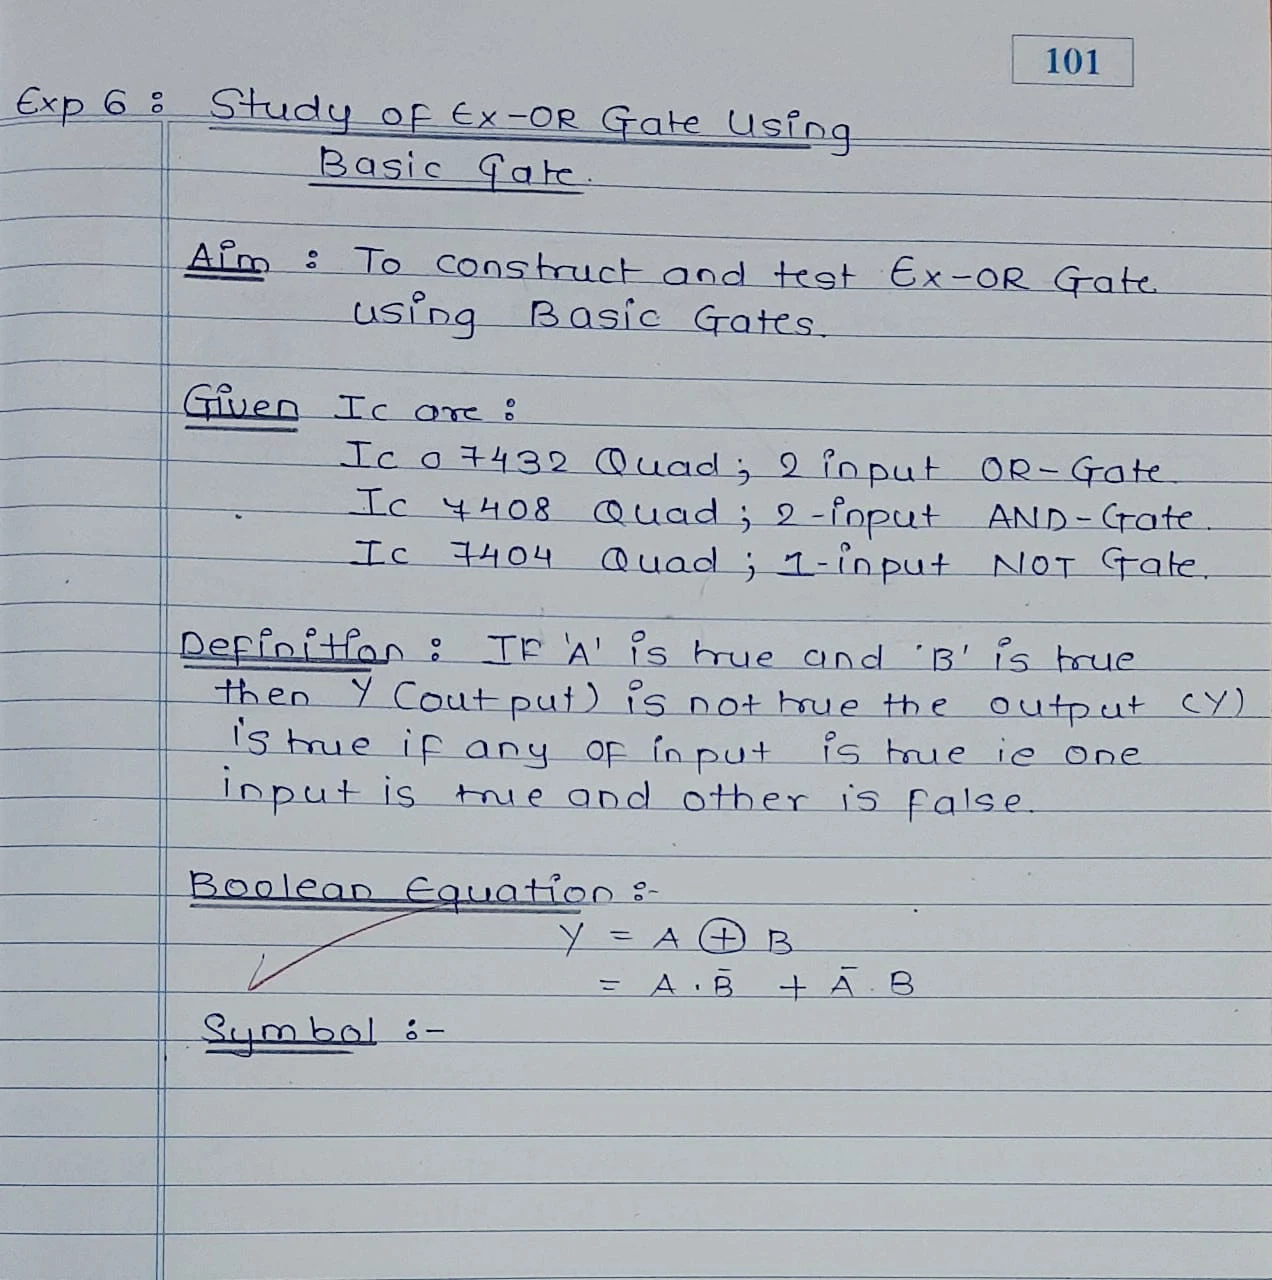 101
Exp 6 : Study of Ex-OR Gate Using
Basic Gate.
Aim : To construct and test Ex-OR Gate
using Basic Gates.
Given Ic are :
Ic 0 7432 Quad ; 2 input OR-Gate.
Ic 7408 Quad ; 2-input AND-Gate.
Ic 7404 Quad ; 1-input NOT Gate.
Definition : IF 'A' is true and 'B' is true
then Y (output) is not true the output (Y)
is true if any of input is true ie one
input is true and other is false.
Boolean Equation :-
Y = A ⊕ B
= A . B̄ + Ā . B
Symbol :-